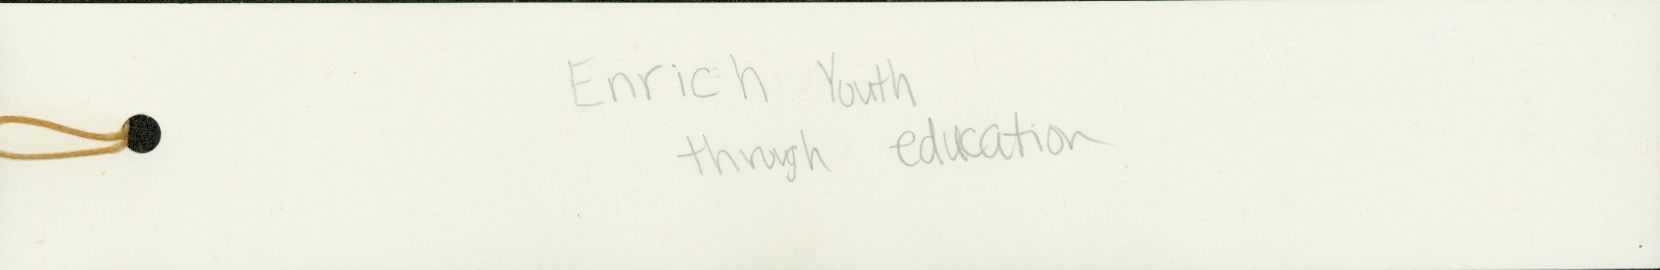 Enrich Youth
through education